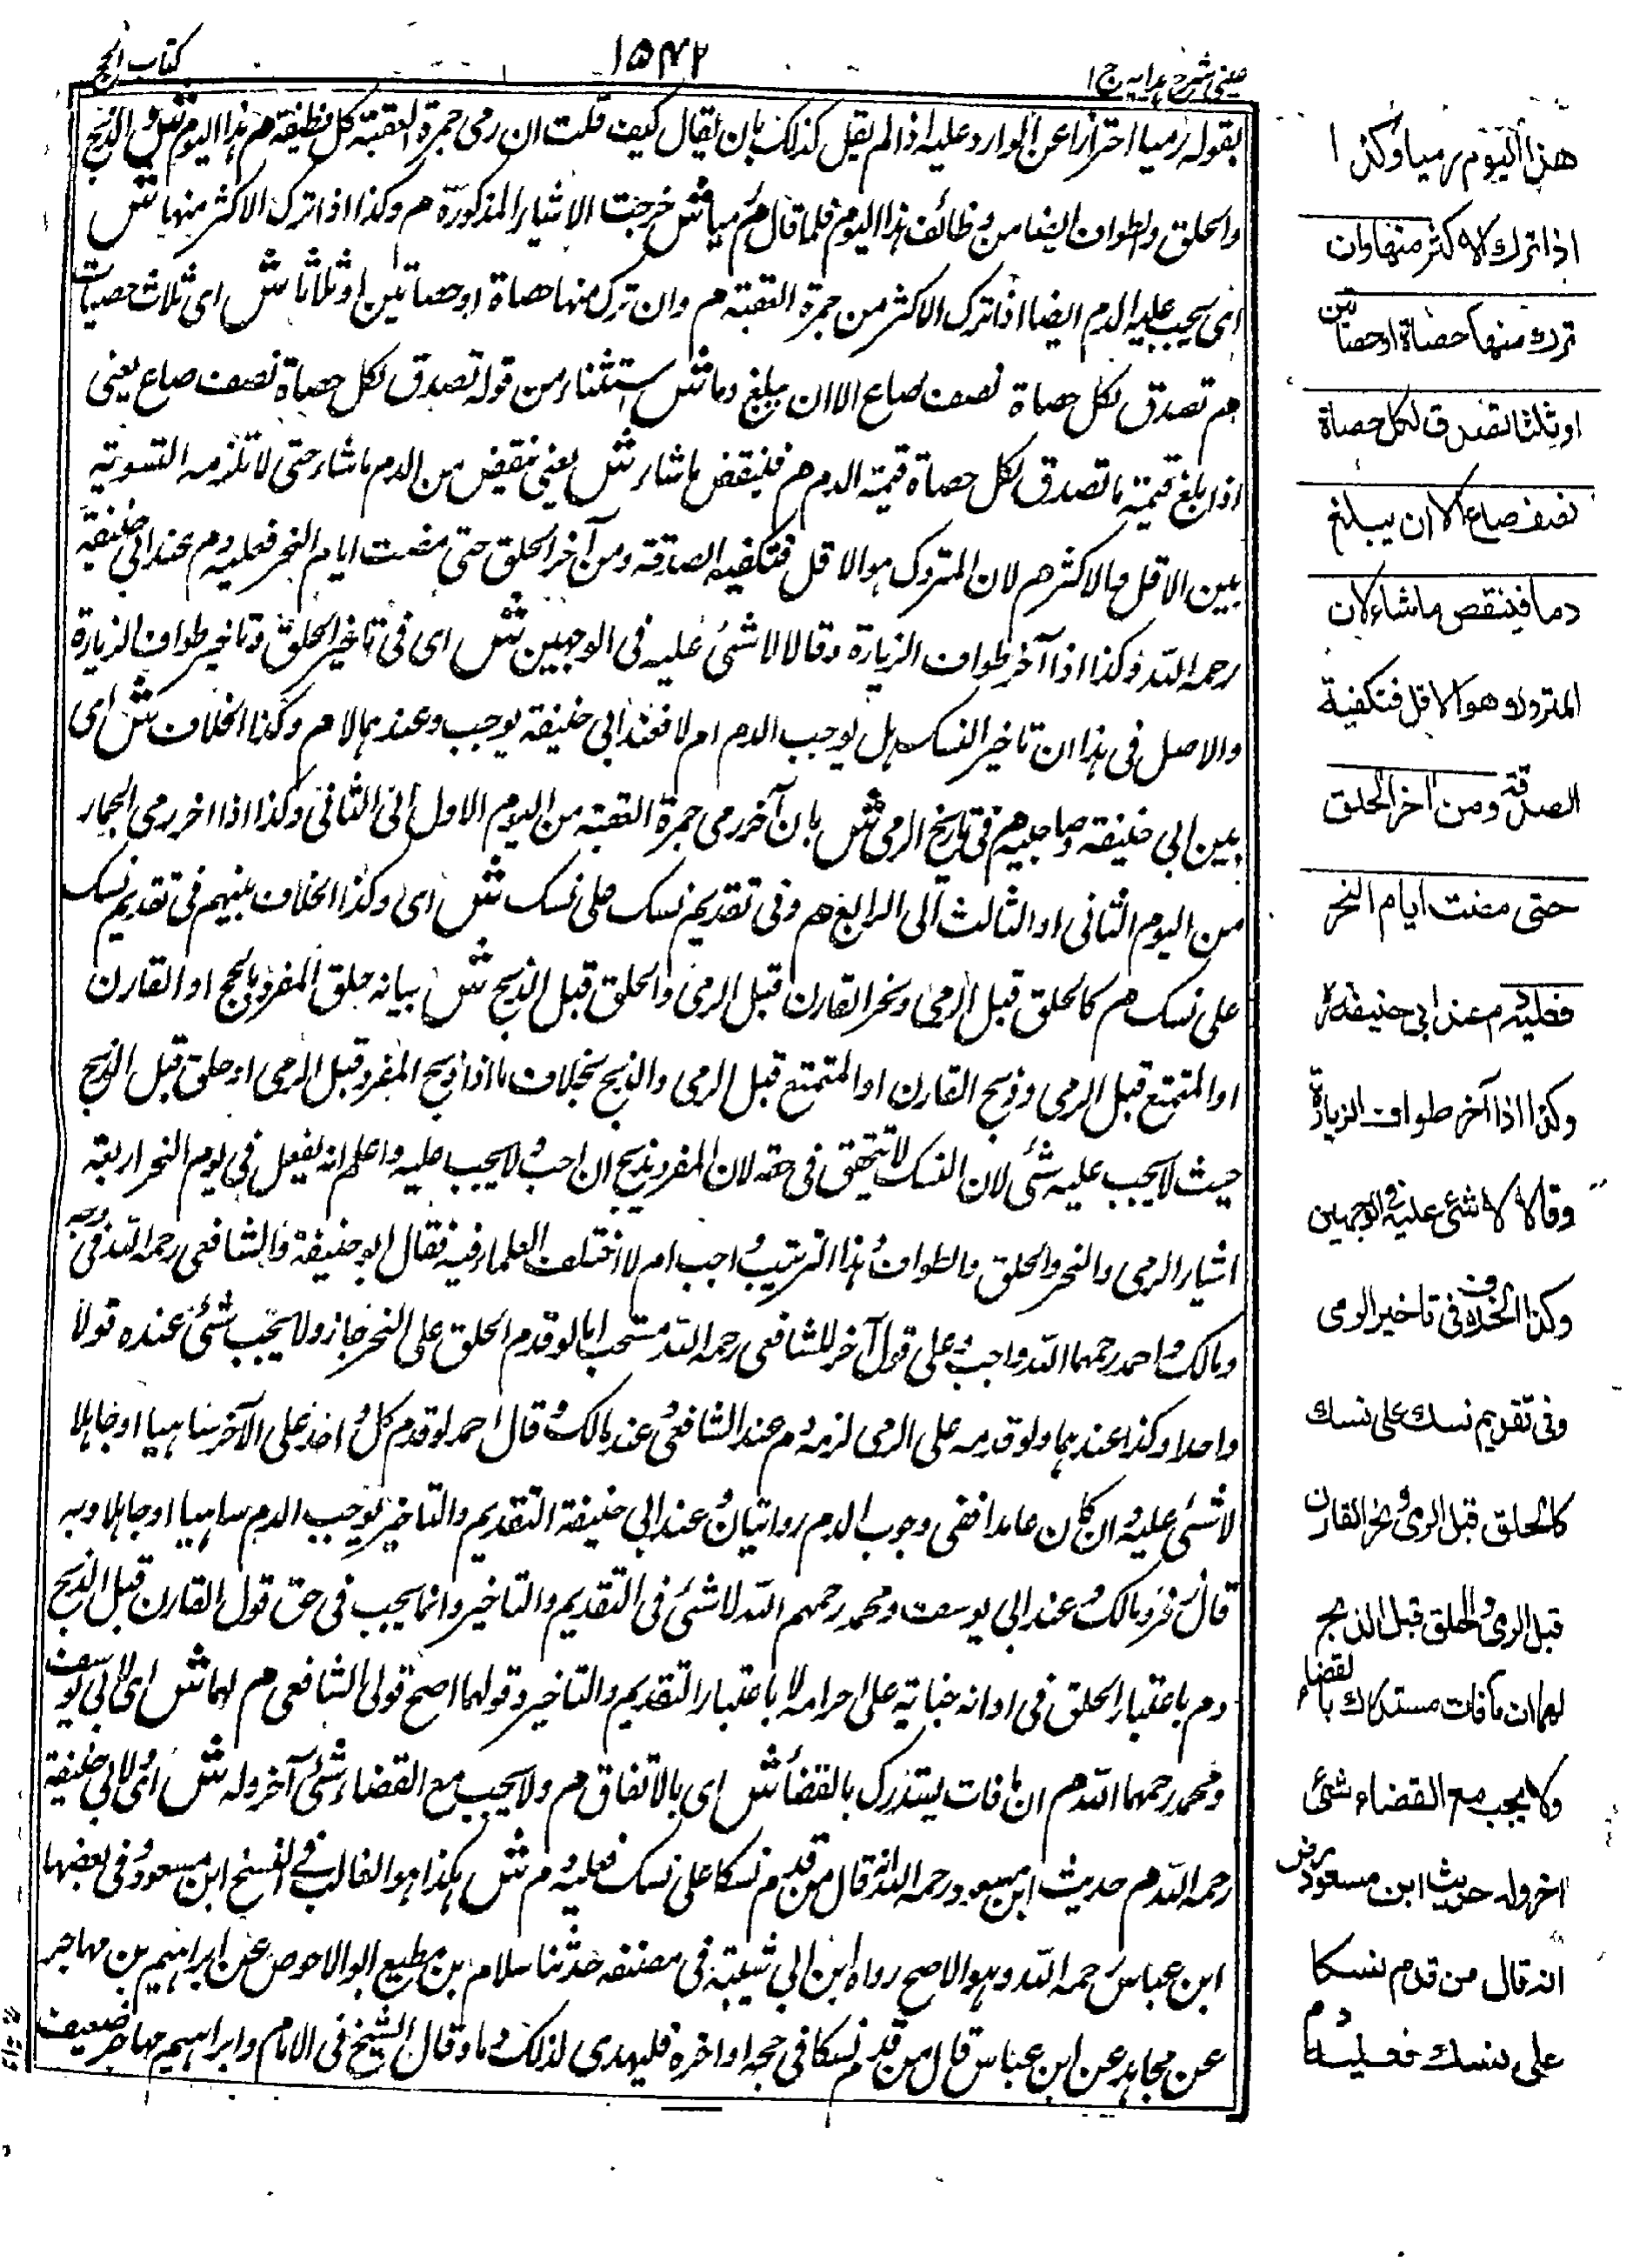 عینی شرح ہدایہ ج ا
۱۵۴۲
کتاب الحج
بقوله رميا احترازا عن الوارد عليه اذا لم يقل كذلك بان يقال كيف قلت ان رمى جمرة العقبة كل وظيفة هم هذا اليوم ش والذبح
والحلق والطواف ايضا من وظائف هذا اليوم فلما قال رميا ش خرجت الاشياء المذكورة م وكذا اذا ترك الاكثر منها ش
اى يجب عليه الدم ايضا اذا ترك الاكثر من جمرة العقبة م وان ترك منها حصاة او حصاتين او ثلاثا ش اى ثلاث حصيات
م تصدق لكل حصاة نصف صاع الا ان يبلغ دما ش استثناء من قوله تصدق لكل حصاة نصف صاع يعنى
اذا بلغ قيمة ما تصدق لكل حصاة قيمة الدم م فينقض ما شاء ش يعنى ينقض من الدم ما شاء حتى لا تلزمه التسوية
بين الاقل والاكثر م لان المتروك هو الاقل فتكفيه الصدقة ومن آخر الحلق حتى مضت ايام النحر فعليه دم عند ابى حنيفة
رحمه الله وكذا اذا آخر طواف الزيارة وقالا لا شئ عليه فى الوجهين ش اى فى تاخير الحلق وتاخير طواف الزيارة
والاصل فى هذا ان تاخير النسك هل يوجب الدم ام لا فعند ابى حنيفة يوجب وعندهما لا م وكذا الخلاف ش اى
بين ابى حنيفة وصاحبيه م فى تاخير الرمى ش بان آخر رمى جمرة العقبة من اليوم الاول الى الثانى وكذا اذا اخر رمى الجمار
من اليوم الثانى او الثالث الى الرابع م وفى تقديم نسك على نسك ش اى وكذا الخلاف بينهم فى تقديم نسك
على نسك م كالحلق قبل الرمى ونحر القارن قبل الرمى والحلق قبل الذبح ش بيانه حلق المفرد بالحج او القارن
او المتمتع قبل الرمى وذبح القارن او المتمتع قبل الرمى والذبح بخلاف ما اذا ذبح المفرد قبل الرمى او حلق قبل الذبح
حيث لا يجب عليه شئ لان النسك لا تتحقق فى حقه لان المفرد يذبح ان احب ولا يجب عليه واعلم انه يفعل فى يوم النحر اربعة
اشياء الرمى والنحر والحلق والطواف وهذا الترتيب واجب ام لا اختلف العلماء فيه فقال ابو حنيفة والشافعى رحمه الله فى وجه
ومالك واحمد رحمهما الله واجب وعلى قول آخر للشافعى رحمه الله مستحب اما لو قدم الحلق على النحر جاز ولا يجب شئ عنده قولا
واحدا وكذا عندهما ولو قدمه على الرمى لزمه دم عند الشافعى وعند مالك وقال احمد لو قدم كل واحد على الآخر ساهيا او جاهلا
لا شئ عليه وان كان عامدا ففى وجوب الدم روايتان وعند ابى حنيفة التقديم والتاخير يوجب الدم ساهيا او جاهلا وبه
قال زفر ومالك وعند ابى يوسف ومحمد رحمهم الله لا شئ فى التقديم والتاخير وانما يجب فى حق قول القارن قبل الذبح
دم باعتبار الحلق فى اوانه جناية على احرامه لا باعتبار التقديم والتاخير وقولهما اصح قولى الشافعى م لهما ش اى لابى يوسف
ومحمد رحمهما الله م ان ما فات يستدرك بالقضاء ش اى بالاتفاق م ولا يجب مع القضاء شئ آخر وله ش اى لابى حنيفة
رحمه الله م حديث ابن مسعود رحمه الله انه قال من قدم نسكا على نسك فعليه دم ش هكذا هو الغالب فى النسخ ابن مسعود وفى بعضها
ابن عباس رحمه الله وهو الاصح رواه ابن ابى شيبة فى مصنفه حدثنا سلام بن مطيع ابو الاحوص عن ابراهيم بن مهاجر
عن مجاهد عن ابن عباس قال من قدم نسكا فى حجه او اخره فليهدى لذلك دما وقال الشيخ فى الامام وابراهيم مهاجر ضعيف
هذا اليوم رميا وكذا
اذا ترك الاكثر منها وان
ترك منها حصاة او حصاتين
او ثلثا تصدق لكل حصاة
نصف صاع الا ان يبلغ
دما فينقص ما شاء لان
المتروك هو الاقل فتكفية
الصدقة ومن اخر الحلق
حتى مضت ايام النحر
فعليه دم عند ابى حنيفة
وكذا اذا آخر طواف الزيارة
وقالا لا شئ عليه فى الوجهين
وكذا الخلاف فى تاخير الرمى
وفى تقديم نسك على نسك
كالحلق قبل الرمى ونحر القارن
قبل الرمى والحلق قبل الذبح
لهما ان ما فات مستدرك بالقضاء
ولا يجب مع القضاء شئ
اخر وله حديث ابن مسعود رض
انه قال من قدم نسكا
على نسك فعليه دم